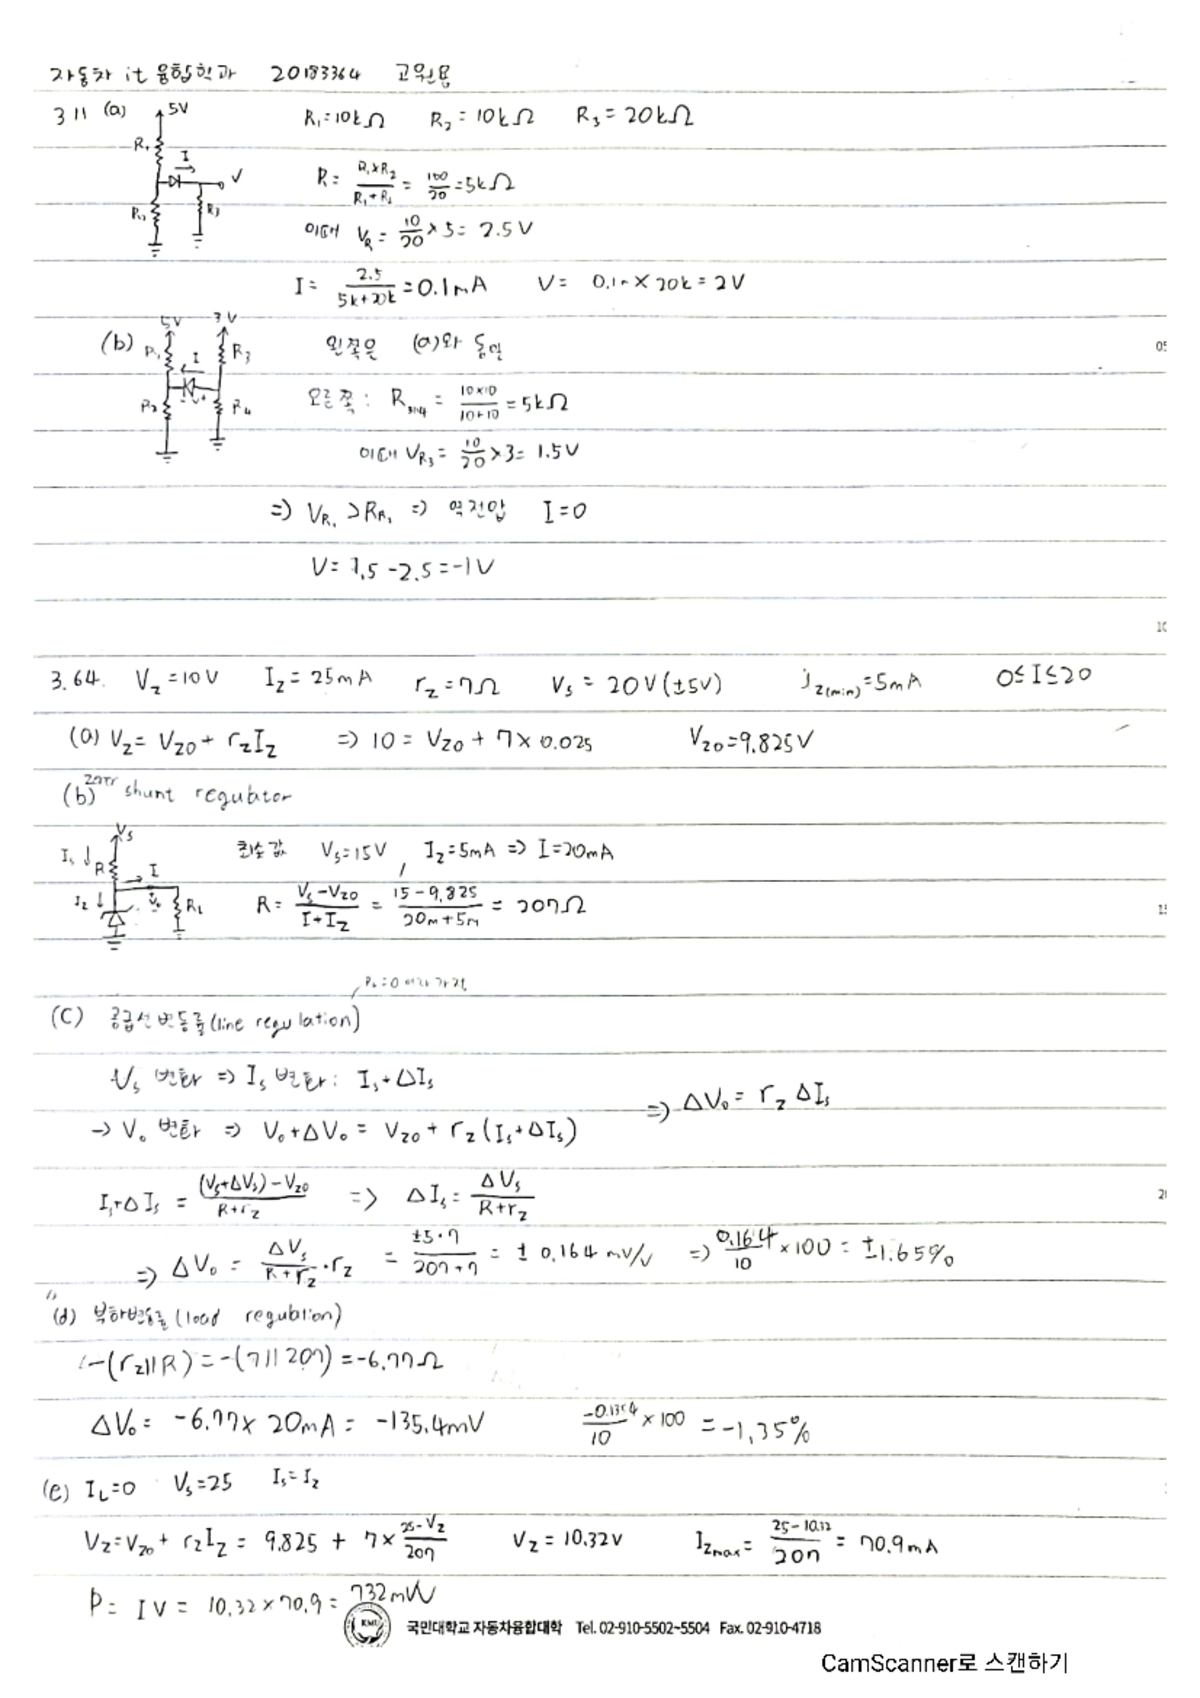 자동차 it 융합학과 20183364 고원용
3 11 (a) 5V R₁=10kΩ R₂=10kΩ R₃=20kΩ
R₁ I V R₂ R₃
R= R₁×R₂/R₁+R₂ = 100/20 =5kΩ
이때 V_R = 10/20 ×5= 2.5V
I= 2.5/5k+20k =0.1mA V= 0.1m×20k=2V
(b) 5V 3V R₁ R₃ I 왼쪽은 (a)와 동일
R₂ - V + R₄ 오른쪽: R₃//₄ = 10×10/10+10 =5kΩ
이때 V_R₃= 10/20 ×3= 1.5V
=> V_R₁ >R_R₃ => 역전압 I=0
V= 1.5 -2.5=-1V
3.64. V_z=10V I_z=25mA r_z=7Ω V_s = 20V(±5V) i_z(min)=5mA 0≤I≤20
(a) V_z= V_z0+ r_zI_z => 10= V_z0+7×0.025 V_z0=9.825V
(b) zener shunt regulator
V_s I_s R I 최솟값 V_s=15V, I_z=5mA => I=20mA
I_z V₀ R_L R= V_s-V_z0/I+I_z = 15-9.825/20m+5m = 207Ω
(C) 공급선변동률(line regulation)
V_s 변화 => I_s 변화: I_s+ΔI_s
=> ΔV₀= r_z ΔI_s
-> V₀ 변화 => V₀+ΔV₀= V_z0+ r_z(I_s+ΔI_s)
I_s+ΔI_s = (V_s+ΔV_s)-V_z0/R+r_z => ΔI_s= ΔV_s/R+r_z
=> ΔV₀ = ΔV_s/R+r_z ·r_z = ±5·7/207+7 = ± 0.164 mV/V => 0.164/10 ×100= ±1.65%
(d) 부하변동률(load regulation)
-(r_z||R)=-(7||207)=-6.77Ω
ΔV₀= -6.77× 20mA= -135.4mV -0.1354/10 ×100 =-1.35%
(e) I_L=0 V_s=25 I_s=I_z
V_z=V_z0+ r_zI_z= 9.825 + 7× 25-V_z/207 V_z= 10.32V I_zmax= 25-10.32/207 = 70.9mA
P= IV= 10.32×70.9= 732mW
KMU 국민대학교 자동차융합대학 Tel. 02-910-5502~5504 Fax. 02-910-4718
CamScanner로 스캔하기